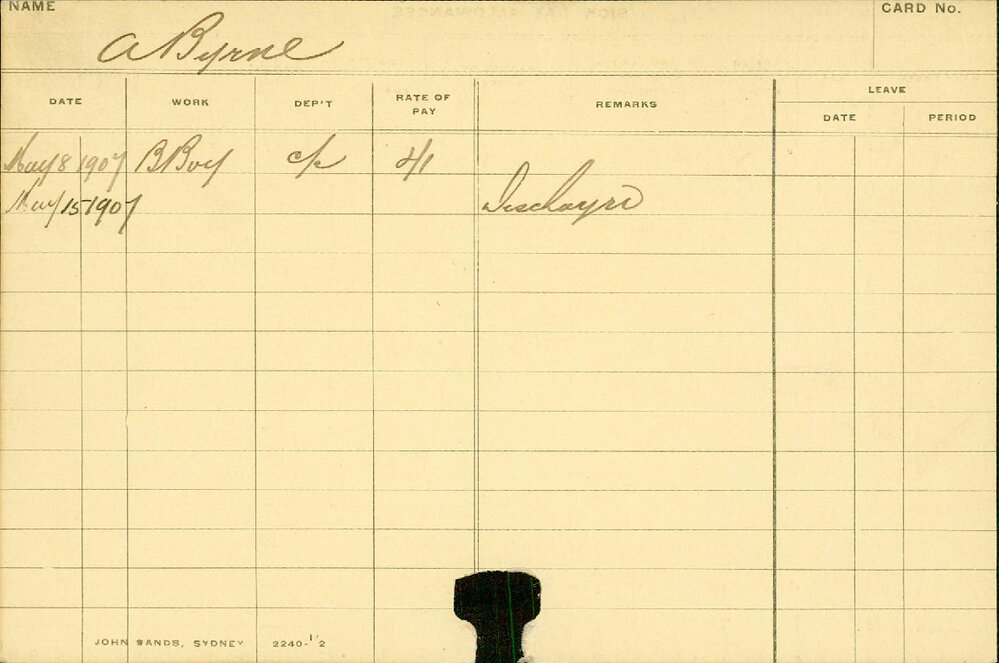 NAME
CARD No.
A Byrne
DATE WORK DEP'T RATE OF PAY REMARKS LEAVE
DATE PERIOD
May 8 1907 BBoy c/c 4/1
May 15 1907 Discharged
JOHN SANDS, SYDNEY 2240-1/2